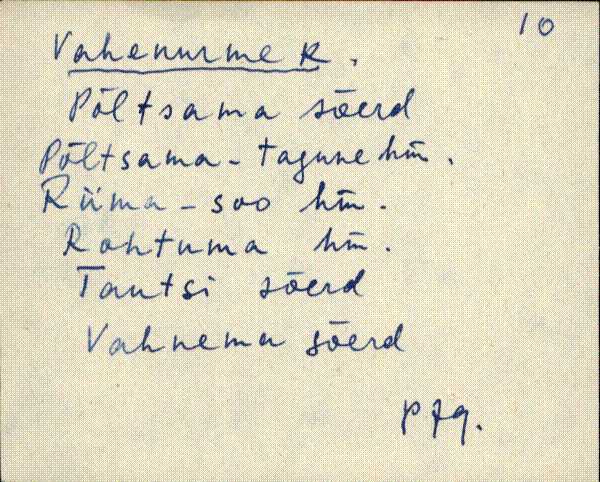 10
Vahenurme k.
Põltsama sõerd
Põltsama-tagune hm.
Riima-soo hm.
Rohtuma hm.
Tautsi sõerd
Vahnema sõerd